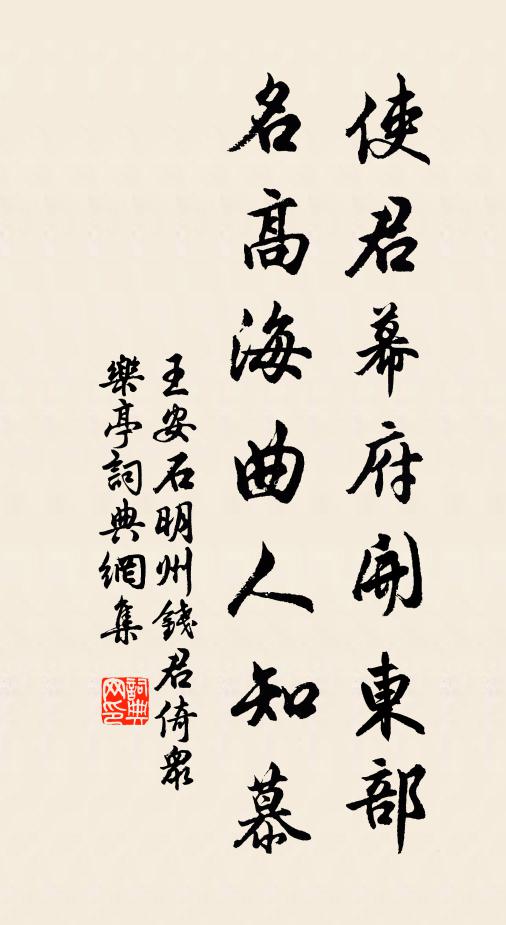 使君幕府開東部
名高海曲人知慕
王安石明州錢君倚眾
樂亭詞典網集
詞典
网印